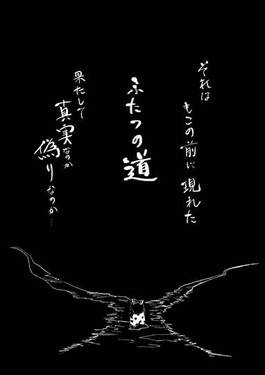 それは
もこの前に現れた
ふたつの道
果たして
真実なのか
偽りなのか…